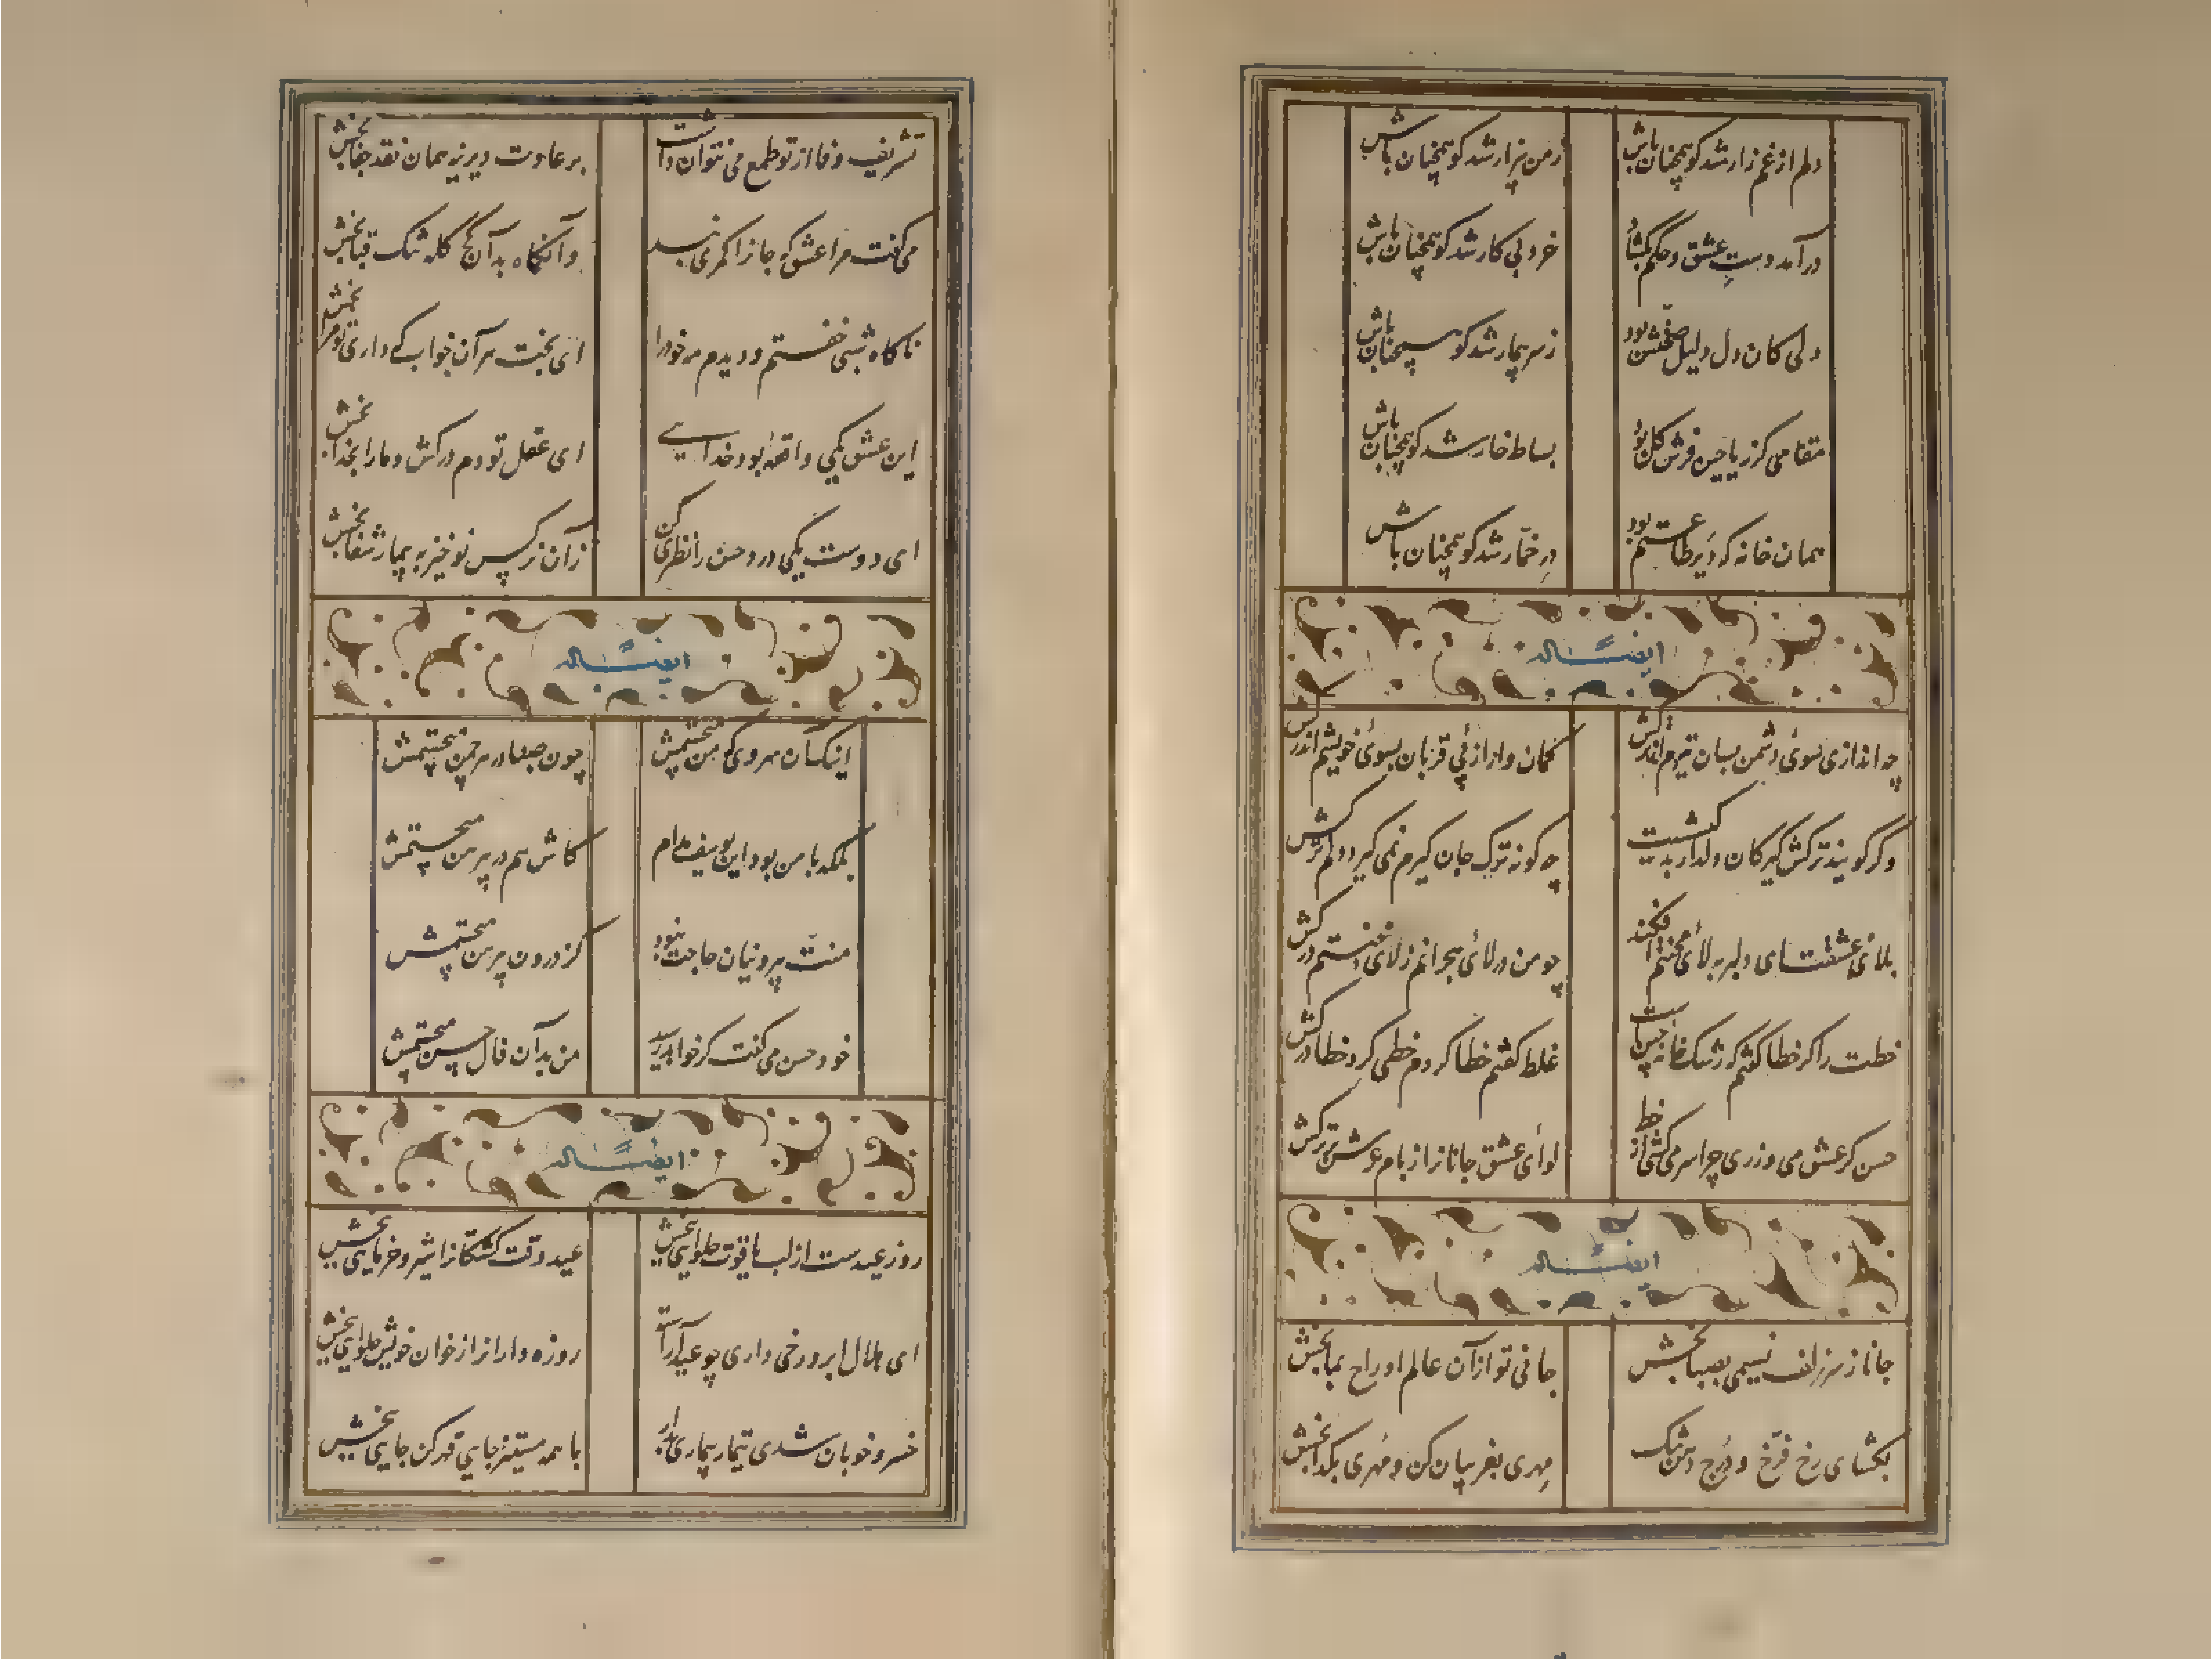 دلم از غم زار شد کو همچنان باش
ز من بیزار شد کو همچنان باش
درآمد دست عشق و حکم
خرد بی کار شد کو همچنان باش
دلی کان دل دلیل صحتش بود
ز سر بیمار شد کو همچنان باش
مقامی کز ریاحین فرش کل بود
بساط خار شد کو همچنان باش
همان خانه که دیر طاعتم بود
در خمّار شد کو همچنان باش
ایضاً له
چه اندازی بسوی دشمن بسان تیرم اندر کش
کمان وار از پی قربان بسوی خویشم اندر کش
و کر کویند ترکش کیر کان دلدار بد کیشست
چه کونه ترک جان کیرم نمی کیرد دلم ترکش
بلای عشقت ای دلبر به لای محنتم افکند
چو من در لای هجرانم ز لای محنتم در کش
خطت را کر خطا کفتم که رشک خانه چین است
غلط کفتم خطا کردم خطی کرد خطا در کش
حسن کر عشق می ورزی چرا سر می کشی از خط
لوای عشق جانان را ز بام عرش برتر کش
ایضاً له
جانا ز سر زلف نسیمی بصبا بخش
جانی تو از آن عالم ارواح بما بخش
بکشای رخ فرّخ و درج دهن تنک
مهری بغریبان کن و مهری بکدا بخش
تشریف وفا از تو طمع می نتوان داشت
بر عادت دیرینه همان نقد جفا بخش
می کفت مرا عشق که جان را کمری بند
وآنکاه بدآن کج کله تنک قبا بخش
ناکاه شبی خفتم و دیدم مه خود را
ای بخت مر آن خواب که داری تو مرا بخش
این عشق یکی واقعه بود خدایی
ای عقل تو دم در کش و ما را بخدا بخش
ای دوست یکی در حسن را نظری کن
زان نرکس نوخیز به بیمار شفا بخش
ایضاً له
اینک آن سروی که من میجستمش
چون صبا در هر چمن میجستمش
بلکه با من بود این یوسف مدام
کاش هم در پیرهن میجستمش
منّت پرّونیان حاجت نبود
کز درون پیرهن میجستمش
خود حسن می کفت کز خواهد رسید
من بدآن فال حسن میجستمش
ایضاً له
روز عیدست از لب یاقوت حلوایی ببخش
عید وقت کشتکانرا شیر و خرمایی ببخش
ای هلال ابرو رخی داری چو عید آراسته
روزه داران را از خوان خویش حلوایی ببخش
خسرو خوبان شدی تیمار بیماری بدار
با همه مستیز جایی قهر کن جایی ببخش